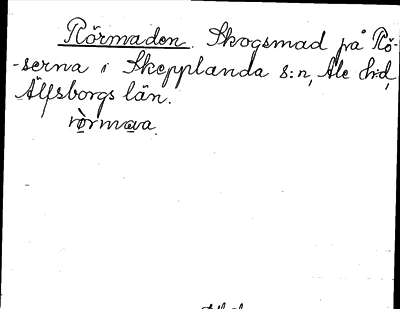 Rörmaden. Skogsmad på Rö-
-serna i Skepplanda s:n, Ale h:d,
Älfsborgs län.
rörmava.